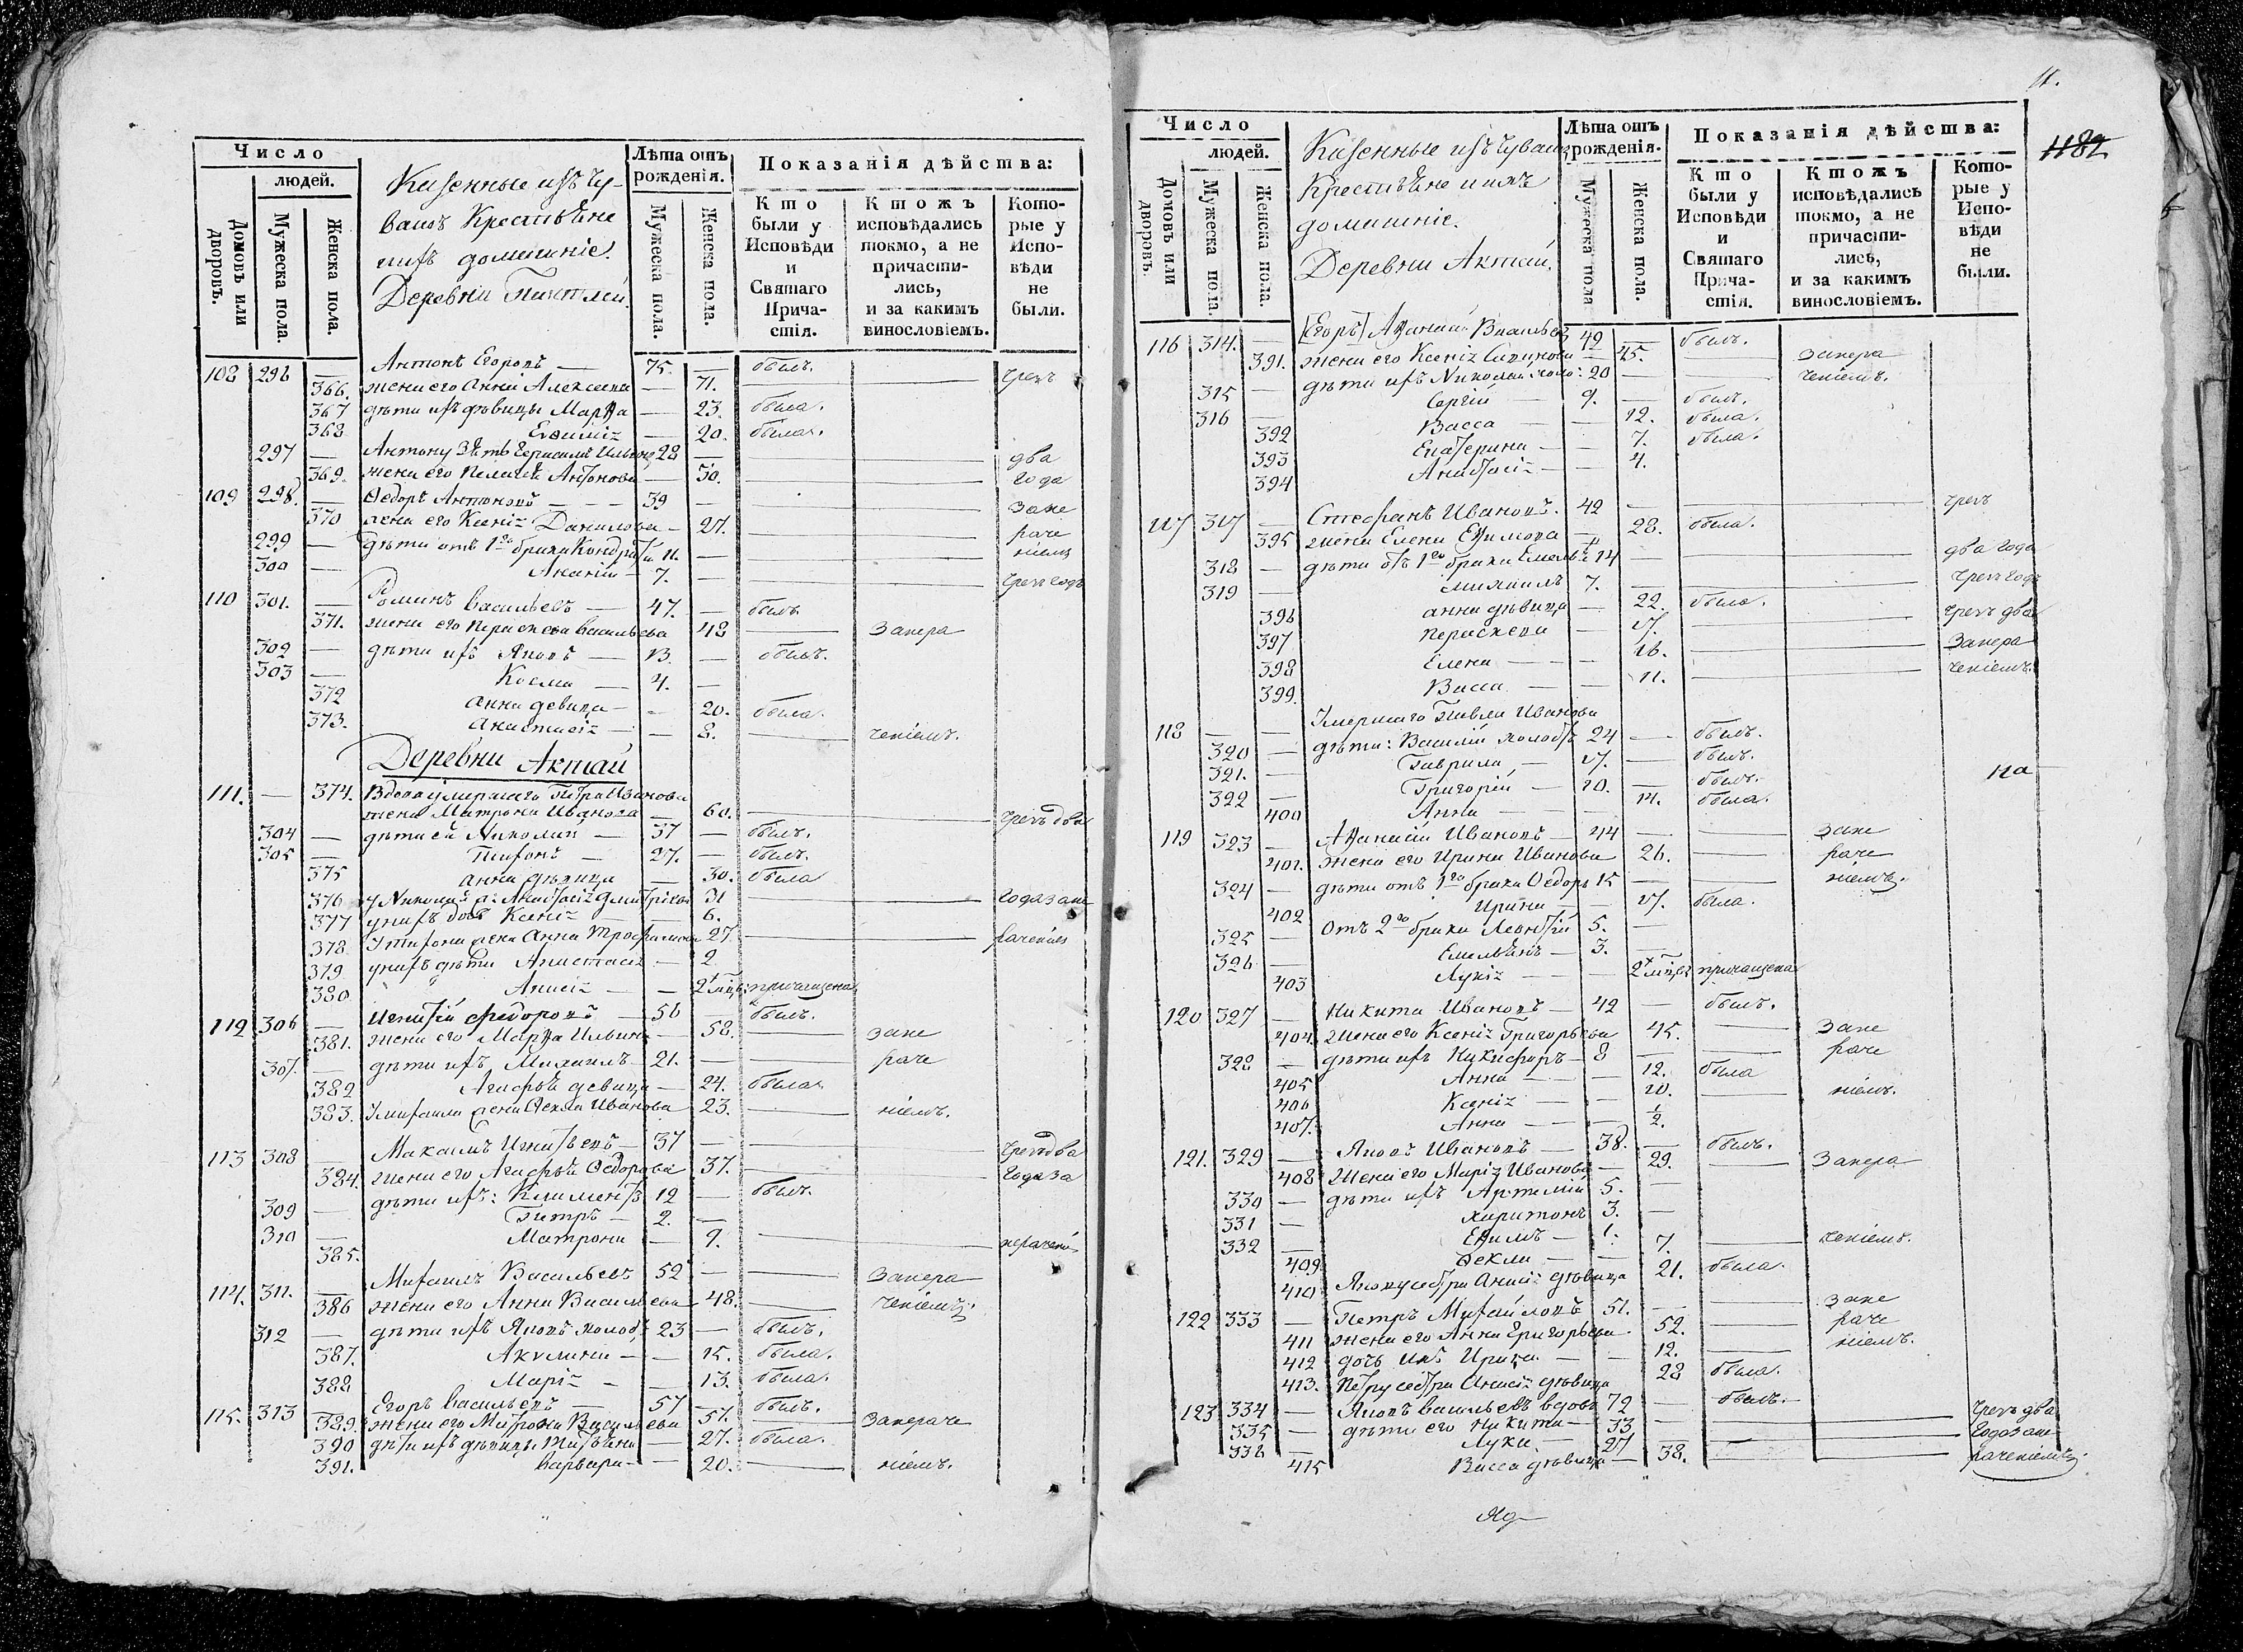 Число
людей.
Домовъ или дворовъ.
Мужеска пола.
Женска пола.
Казенные изъ Чу-
вашъ Крестьяне
ихъ домашніе.
Деревни
Лѣта отъ рожденія.
Мужеска пола.
Женска пола.
Показанія дѣйства:
Кто были у Исповѣди и Святаго Причастія.
Ктожъ исповѣдались токмо, а не причастились, и за какимъ винословіемъ.
Которые у Исповѣди не были.
108 296 — Антонъ Егоровъ — 75. — былъ.
366. жена его Анна Алексеева — 71. — чрезъ
367 дѣти ихъ дѣвицы Марѳа — 23. была.
368 Евѳиміа — 20. была.
297 — Антону зять Герасимъ 28 — два
369. жена его Пелагея Антонова — 30. года
109 298. — Ѳедоръ Антоновъ — 39 — зане
370 жена его Ксенія Данилова — 27. раче
299 — дѣти отъ 1го брака 11. — ніемъ
300 — 7. — чрезъ годъ
110 301. — Романъ Васильевъ — 47. — былъ
371. жена его Параскева Васильева 48 — занера
302 — дѣти ихъ Яковъ — 13. — былъ.
303 — Косма — 4. —
372 Анна девица — 20. была.
373. Анастасіа — 8. — ченіемъ.
Деревни Актай
111. — 374. Вдова умершаго Петра Иванова
жена Матрона Иванова — 60. — чрезъ два
304 — дѣти ей Николай — 37 — былъ.
305 — Тифонъ — 27. — былъ.
375 Анна дѣвица — 30. была
376 у Николая ж: Анастасіа Дмитріева 31 — года зане
377 у нихъ дочь Ксеніа — 6.
378 У Тифона жена Анна Трофимова 27. — раченіем
379 у нихъ дѣти Анастасіа — 2
380 Анисіа — причащена
112 306 — Игнатій Федоровъ — 56 — былъ.
381. жена его Марѳа Ильина — 58. — зане
307. — дѣти ихъ Михаилъ — 21. — раче
382 Агафья девица — 24. была
383. У михаила жена Ѳекла Иванова 23. — ніемъ.
113 308 — Максимъ Игнатьевъ — 37 — чрезъ два
384. жена его Агафья Ѳедорова 37. — года за
309 — дѣти ихъ: Климентъ 12 — былъ.
310 — Петръ — 2. —
385. Матрона — 9. — нерачені
114. 311. — Михаилъ Васильевъ 52 — занера
386 жена его Анна Васильева 48. — ченіемъ.
312 — дѣти ихъ Яковъ холос: 23 — былъ.
387. Акулина — 15. была.
388 Маріа — 13. была.
115. 313 — Егоръ Васильевъ — 57 — былъ.
389. жена его Матрона Васильева 57. — занераче
390 дѣти ихъ дѣвицы Татьяна — 27. была.
391. Варвара — 20. — ніемъ.
11.
1182
Число
людей.
Домовъ или дворовъ.
Мужеска пола.
Женска пола.
Казенные изъ Чувашъ
Крестьяне и ихъ
домашніе.
Деревни Актай.
Лѣта отъ рожденія.
Мужеска пола
Женска пола.
Показанія дѣйства:
Кто были у Исповѣди и Святаго Причастія.
Ктожъ исповѣдались токмо, а не причастились, и за какимъ винословіемъ.
Которые у Исповѣди не были.
116 314. — [Егоръ] Аѳанасій Васильевъ 49 — былъ.
391. жена его Ксеніа — 45. — занера
315 — дѣти ихъ Николай холос: 20 — ченіемъ.
316 — Сергій — 9. — былъ.
392 Васса — 12. была.
393 Екатерина — 7. была.
394 Анастасіа — 4.
117 317 — Стефанъ Ивановъ. 42 — чрезъ
395 жена Елена Еѳимова — 28. была.
318 — дѣти отъ 1го брака Емельян 14 — два года
319 — Михаилъ 7. — чрезъ годъ
396 Анна дѣвица — 22. была.
397 Параскева — 17. — чрезъ два
398 Елена — 16. — занера
399. Васса — 11. — ченіемъ.
118 — Умершаго Павла Иванова
320 — дѣти: Василій холостъ 24 — былъ.
321. — Гаврила — 17. — былъ.
322 — Григорій — 10. — былъ.
400 Анна — 14. была.
119 323 — Аѳанасій Ивановъ — 44 — зане
401. жена его Ирина Иванова 26. — раче
324 — дѣти отъ 1го брака Ѳедоръ 15 — ніемъ.
402 Ирина — 17. была.
325 — Отъ 2го брака Леонтій 5. —
326 — Емельянъ — 3. —
403 Лукіа — причащена
120 327 — Никита Ивановъ — 42 — былъ.
404. жена его Ксеніа Григорьева 45. — зане
328 — дѣти ихъ Никифоръ — 8 — раче
405 Анна — 12. была
406 Ксеніа — 10. — ніемъ.
407. Анна — ½.
121. 329 — Яковъ Ивановъ — 38. — былъ.
408 жена его Маріа Иванова — 29. — занера
330 — дѣти ихъ Артемій 5. —
331 — Харитонъ 3. —
332 — Еѳимъ — 1.
409. Ѳекла — 7. — ченіемъ.
410 Якову сестра Анисіа дѣвица 21. была.
122 333 — Петръ Михайловъ 51. — зане
411 жена его Анна Григорьева 52. — раче
412 дочь ихъ Ирина — 12. — ніемъ.
413. Петру сестра Анисіа дѣвица 28 была.
123 334 — Яковъ Васильевъ вдовъ 72 — былъ.
335 — дѣти его Никита — 33 — чрезъ два
336 — Лука — 27 — года зане
415 Васса дѣвица — 38. — раченіемъ.